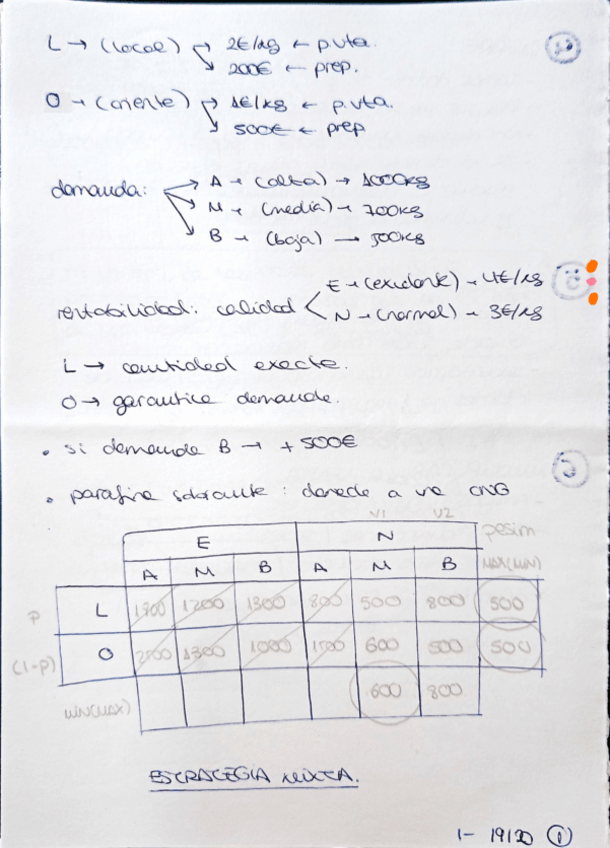 L → (local) → 2€/kg ← p. vta.
→ 200€ ← prep.
O → (oriente) → 1€/kg ← p. vta.
→ 500€ ← prep
demanda: → A → (alta) → 1000kg
→ M → (media) → 700kg
→ B → (baja) → 500kg
rentabilidad: calidad < E → (excelente) → 4€/kg
N → (normal) → 3€/kg
L → cantidad exacta.
O → garantiza demanda.
• si demanda B → + 500€
• parafina sobrante: donada a una ONG
V1 V2
E N pesim
A M B A M B MAX(MIN)
p L 1800 1200 1300 800 500 800 500
(1-p) O 2500 1300 1000 1500 600 500 500
MIN(MAX) 600 800
ESTRATEGIA MIXTA.
1- 19/20 ①